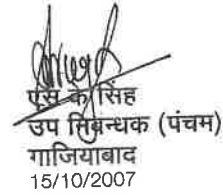 एस के सिंह
उप निबन्धक (पंचम)
गाजियाबाद
15/10/2007